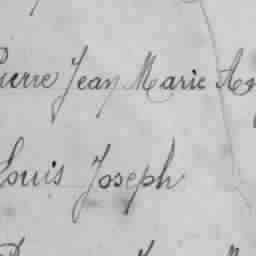 Pierre Jean Marie
Louis Joseph